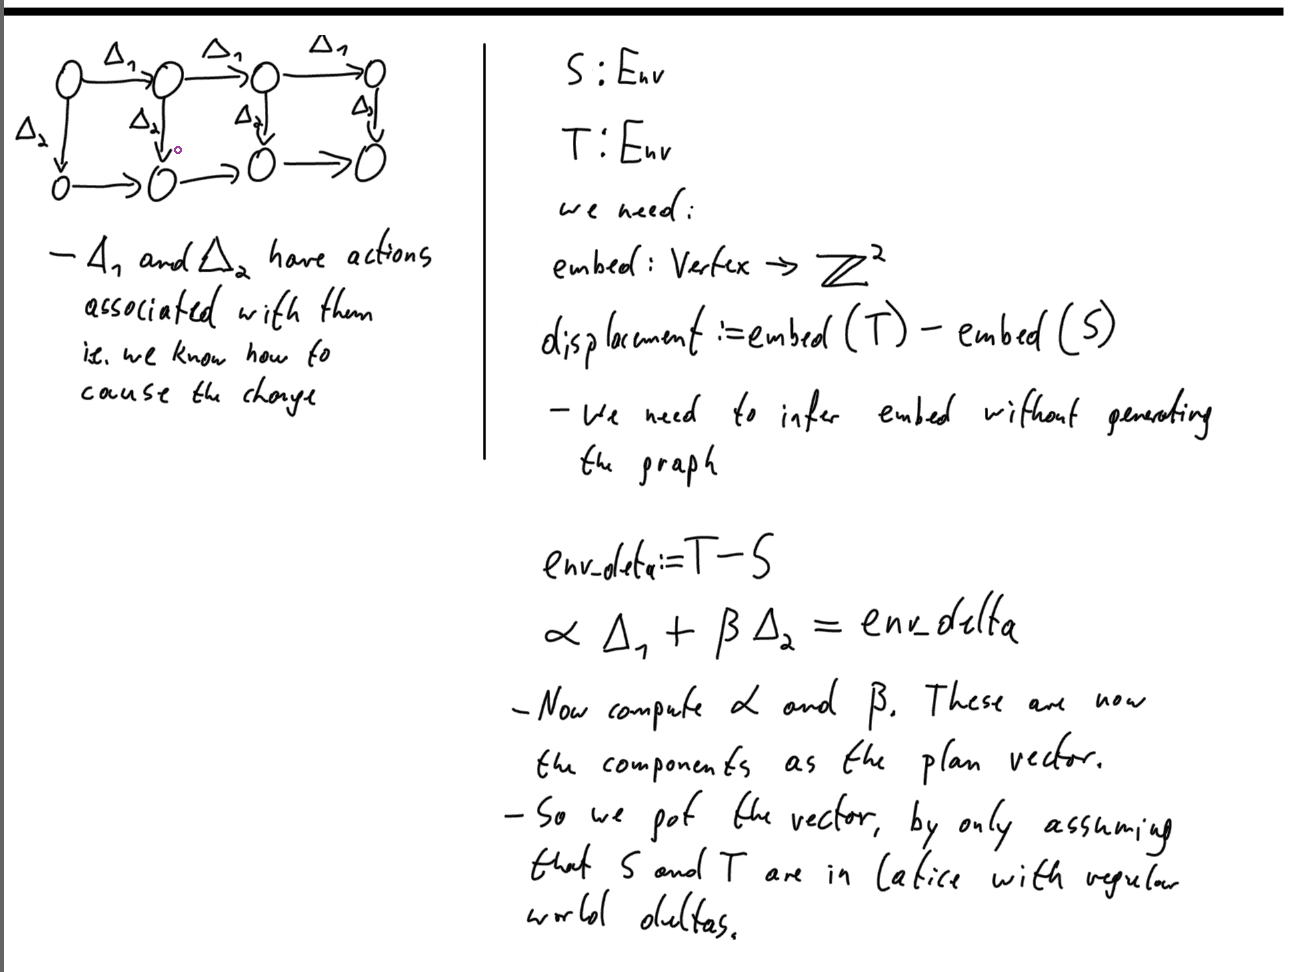 Δ₁ Δ₁ Δ₁
Δ₂ Δ₂ Δ₂ Δ₂
- Δ₁ and Δ₂ have actions
associated with them
i.e. we know how to
cause the change
S : Env
T : Env
we need:
embed : Vertex → ℤ²
displacment := embed (T) - embed (S)
- We need to infer embed without generating
the graph
env_delta := T - S
α Δ₁ + β Δ₂ = env_delta
- Now compute α and β. These are now
the components as the plan vector.
- So we got the vector, by only assuming
that S and T are in latice with regular
world deltas.